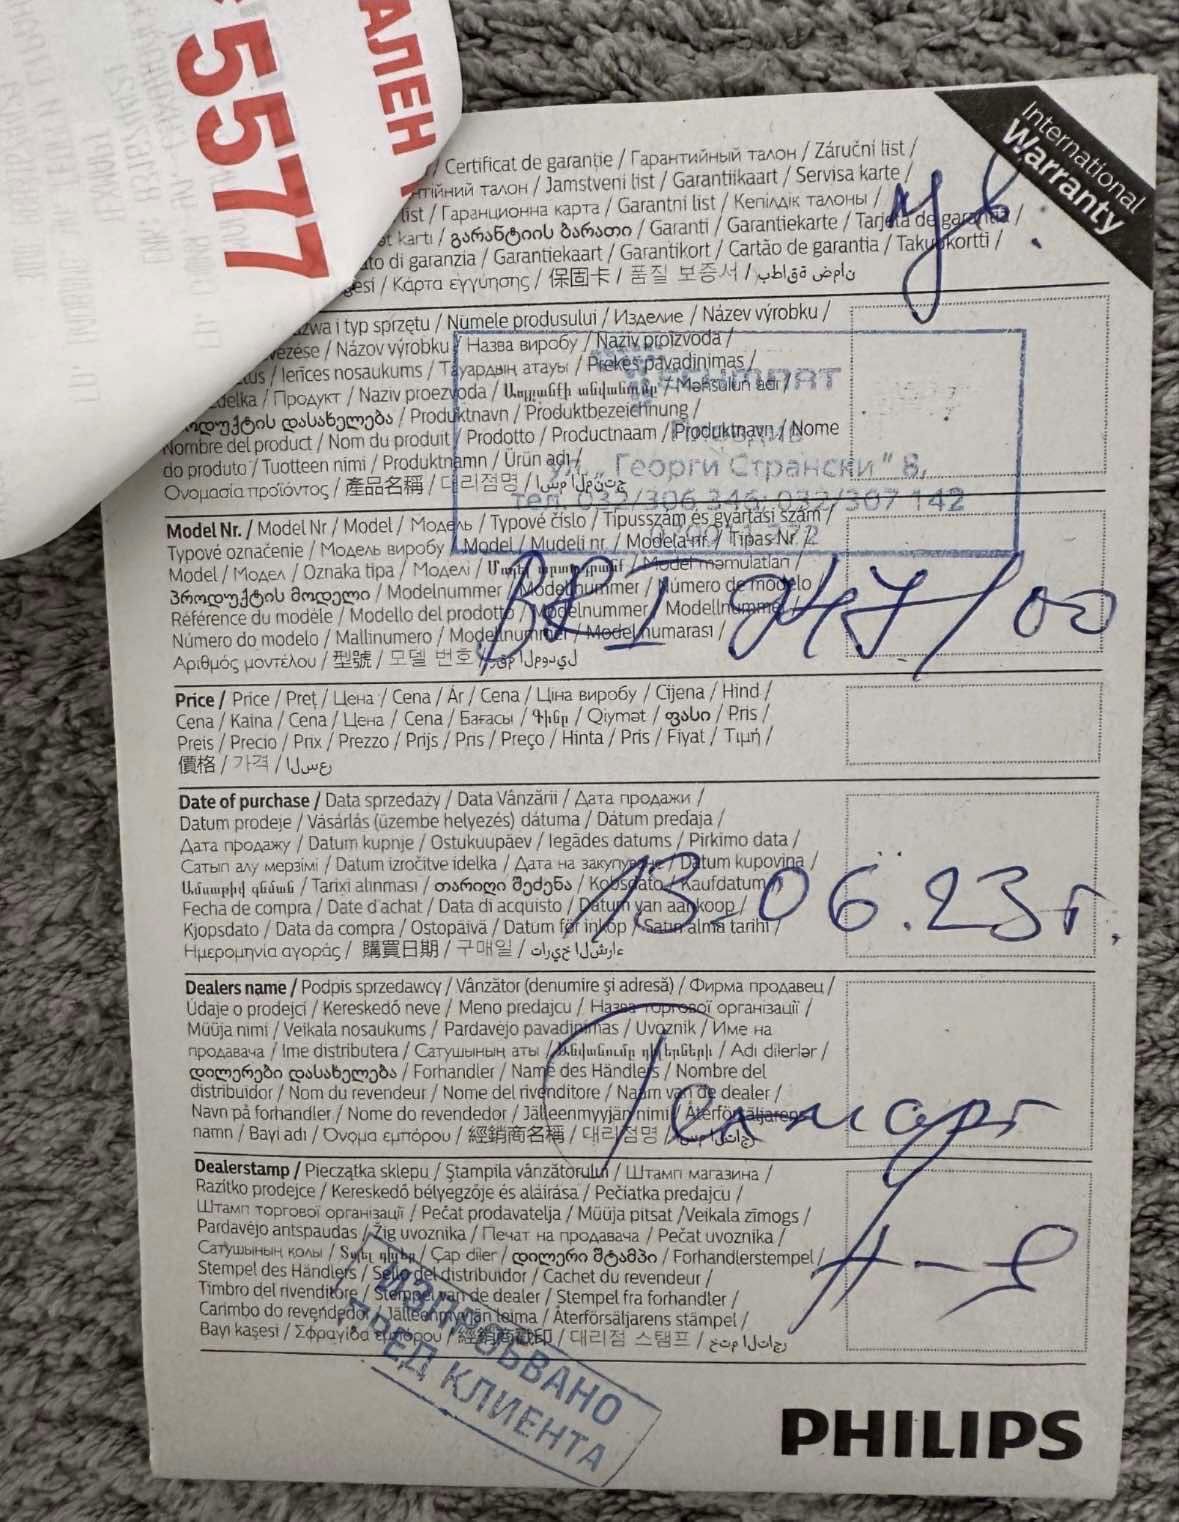 5577
АЛЕН
International
Warranty
/ Certificat de garanție / Гарантийный талон / Záruční list /
тійний талон / Jamstveni list / Garantiikaart / Servisa karte /
list / Гаранционна карта / Garantni list / Кепілдік талоны /
kartı / გარანტიის ბარათი / Garanti / Garantiekarte / Tarjeta de garantía /
di garanzia / Garantiekaart / Garantikort / Cartão de garantia / Takuukortti /
/ Κάρτα εγγύησης / 保固卡 / 품질 보증서 / بطاقة ضمان
i typ sprzętu / Numele produsului / Изделие / Název výrobku /
/ Názov výrobku / Назва виробу / Naziv proizvoda /
/ Ierīces nosaukums / Тауардың атауы / Prekės pavadinimas /
/ Продукт / Naziv proezvoda / Ապրանքի անվանումը / Məhsulun adı /
პროდუქტის დასახელება / Produktnavn / Produktbezeichnung /
Nombre del product / Nom du produit / Prodotto / Productnaam / Produktnavn / Nome
do produto / Tuotteen nimi / Produktnamn / Ürün adı /
Ονομασία προϊόντος / 產品名稱 / 대리점명 / اسم المنتج
ул. „Георги Странски" 8,
тел. 032/306 346; 032/307 142
Model Nr. / Model Nr / Model / Модель / Typové číslo / Típusszám és gyártási szám /
Typové označenie / Модель виробу / Model / Mudeli nr. / Modeļa nr. / Tipas Nr. /
Model / Модел / Oznaka tipa / Моделі / Model məmulatları /
პროდუქტის მოდელი / Modelnummer / Modellnummer / Número de modelo /
Référence du modèle / Modello del prodotto / Modelnummer / Modellnummer /
Número do modelo / Mallinumero / Modellnummer / Model numarası /
Αριθμός μοντέλου / 型號 / 모델 번호 / رقم الموديل
BRI 947/00
Price / Price / Preț / Цена / Cena / Ár / Cena / Ціна виробу / Cijena / Hind /
Cena / Kaina / Cena / Цена / Cena / Бағасы / Գինը / Qiymət / ფასი / Pris /
Preis / Precio / Prix / Prezzo / Prijs / Pris / Preço / Hinta / Pris / Fiyat / Τιμή /
價格 / 가격 / السعر
Date of purchase / Data sprzedaży / Data Vânzării / Дата продажи /
Datum prodeje / Vásárlás (üzembe helyezés) dátuma / Dátum predaja /
Дата продажу / Datum kupnje / Ostukuupäev / Iegādes datums / Pirkimo data /
Сатып алу мерзімі / Datum izročitve idelka / Дата на закупуване / Datum kupovina /
Ամսաթիվ գնման / Tarixi alınması / თარიღი შეძენა / Købsdato / Kaufdatum /
Fecha de compra / Date d'achat / Data di acquisto / Datum van aankoop /
Kjøpsdato / Data da compra / Ostopäivä / Datum för inköp / Satın alma tarihi /
Ημερομηνία αγοράς / 購買日期 / 구매일 / تاريخ الشراء
13.06.23г.
Dealers name / Podpis sprzedawcy / Vânzător (denumire și adresă) / Фирма продавец /
Údaje o prodejci / Kereskedő neve / Meno predajcu / Назва торгової організації /
Müüja nimi / Veikala nosaukums / Pardavėjo pavadinimas / Uvoznik / Име на
продавача / Ime distributera / Сатушының аты / Adı dilerlər /
დილერები დასახელება / Forhandler / Name des Händlers / Nombre del
distribuidor / Nom du revendeur / Nome del rivenditore / Naam van de dealer /
Navn på forhandler / Nome do revendedor / Jälleenmyyjän nimi / Återförsäljarens
namn / Bayi adı / Όνομα εμπόρου / 經銷商名稱 / 대리점명 / اسم التاجر
Техмарт
Dealerstamp / Pieczątka sklepu / Ștampila vânzătorului / Штамп магазина /
Razítko prodejce / Kereskedő bélyegzője és aláírása / Pečiatka predajcu /
Штамп торгової організації / Pečat prodavatelja / Müüja pitsat / Veikala zīmogs /
Pardavėjo antspaudas / Žig uvoznika / Печат на продавача / Pečat uvoznika /
Сатушының қолы / Çap diler / დილერი შტამპი / Forhandlerstempel /
Stempel des Händlers / Sello del distribuidor / Cachet du revendeur /
Timbro del rivenditore / Stempel van de dealer / Stempel fra forhandler /
Carimbo do revendedor / Jälleenmyyjän leima / Återförsäljarens stämpel /
Bayi kaşesi / Σφραγίδα εμπόρου / 經銷商戳印 / 대리점 스탬프 / ختم التاجر
ИЗПРОБВАНО
ПРЕД КЛИЕНТА
PHILIPS